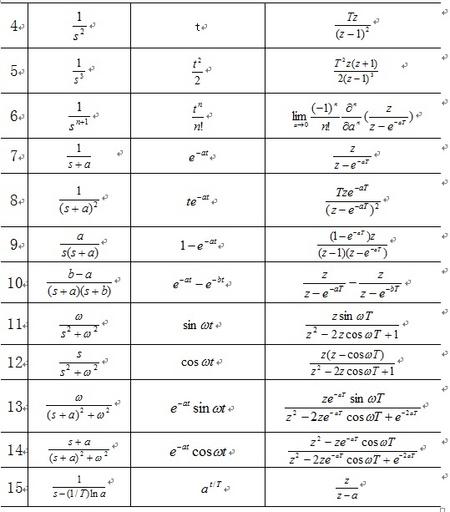 4 \frac{1}{s^2} t \frac{Tz}{(z-1)^2}
5 \frac{1}{s^3} \frac{t^2}{2} \frac{T^2z(z+1)}{2(z-1)^3}
6 \frac{1}{s^{n+1}} \frac{t^n}{n!} \lim_{a→0} \frac{(-1)^n}{n!} \frac{∂^n}{∂a^n} (\frac{z}{z-e^{-aT}})
7 \frac{1}{s+a} e^{-at} \frac{z}{z-e^{-aT}}
8 \frac{1}{(s+a)^2} te^{-at} \frac{Tze^{-aT}}{(z-e^{-aT})^2}
9 \frac{a}{s(s+a)} 1-e^{-at} \frac{(1-e^{-aT})z}{(z-1)(z-e^{-aT})}
10 \frac{b-a}{(s+a)(s+b)} e^{-at}-e^{-bt} \frac{z}{z-e^{-aT}}-\frac{z}{z-e^{-bT}}
11 \frac{ω}{s^2+ω^2} sin ωt \frac{z sin ωT}{z^2-2z cos ωT+1}
12 \frac{s}{s^2+ω^2} cos ωt \frac{z(z-cos ωT)}{z^2-2z cos ωT+1}
13 \frac{ω}{(s+a)^2+ω^2} e^{-at} sin ωt \frac{ze^{-aT} sin ωT}{z^2-2ze^{-aT} cos ωT+e^{-2aT}}
14 \frac{s+a}{(s+a)^2+ω^2} e^{-at} cos ωt \frac{z^2-ze^{-aT} cos ωT}{z^2-2ze^{-aT} cos ωT+e^{-2aT}}
15 \frac{1}{s-(1/T)ln a} a^{t/T} \frac{z}{z-a}